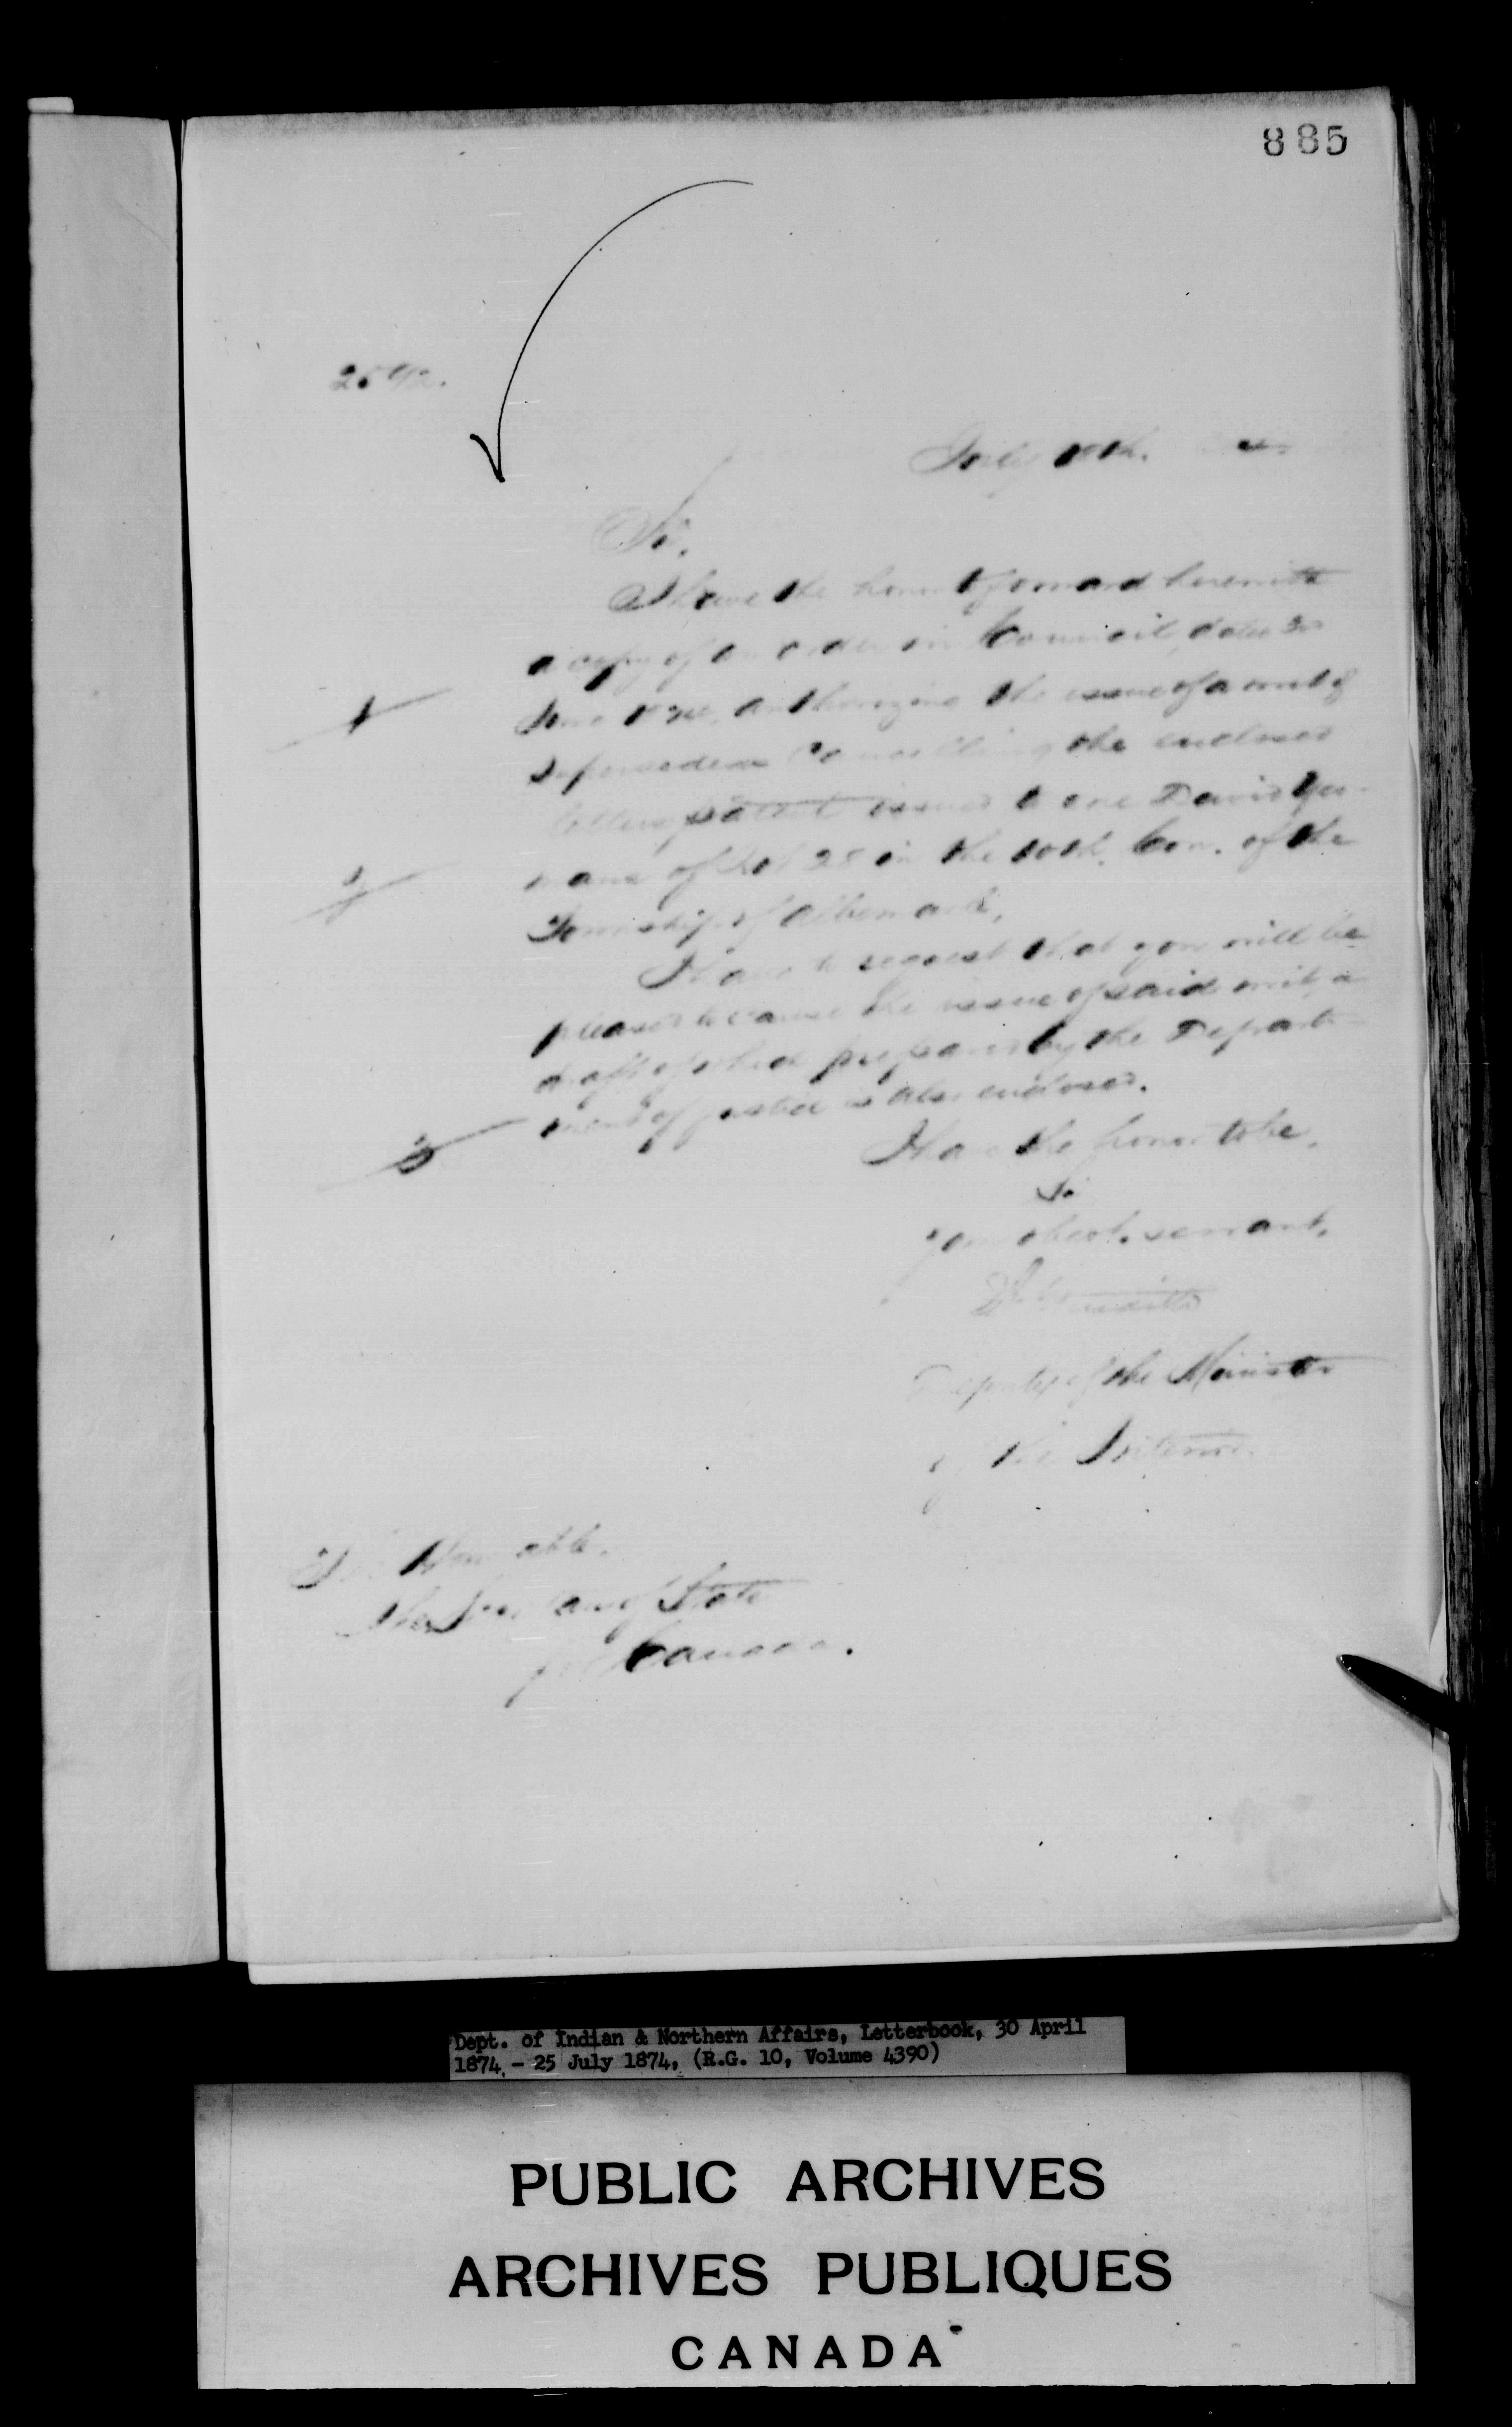 885
July
Sir,
I have the honor to forward herewith
a copy of an order in Council, dated
June authorizing the issue of a writ of
Supersedeas Cancelling the enclosed
letters patent issued to one David
of Lot 25 in the 10th. Con. of the
Township of Albemarle,
I have to request that you will be
pleased to cause the issue of said writ, a
draft of which prepared by the Depart-
ment of justice is also enclosed.
I have the honor to be,
Sir
Your obedt. servant,
Deputy of the Minister
of the Interior.
The Honorable,
The Secretary of State
for Canada.
1
2
3
Dept. of Indian & Northern Affairs, Letterbook, 30 April
1874 - 25 July 1874, (R.G. 10, Volume 4390)
PUBLIC ARCHIVES
ARCHIVES PUBLIQUES
CANADA